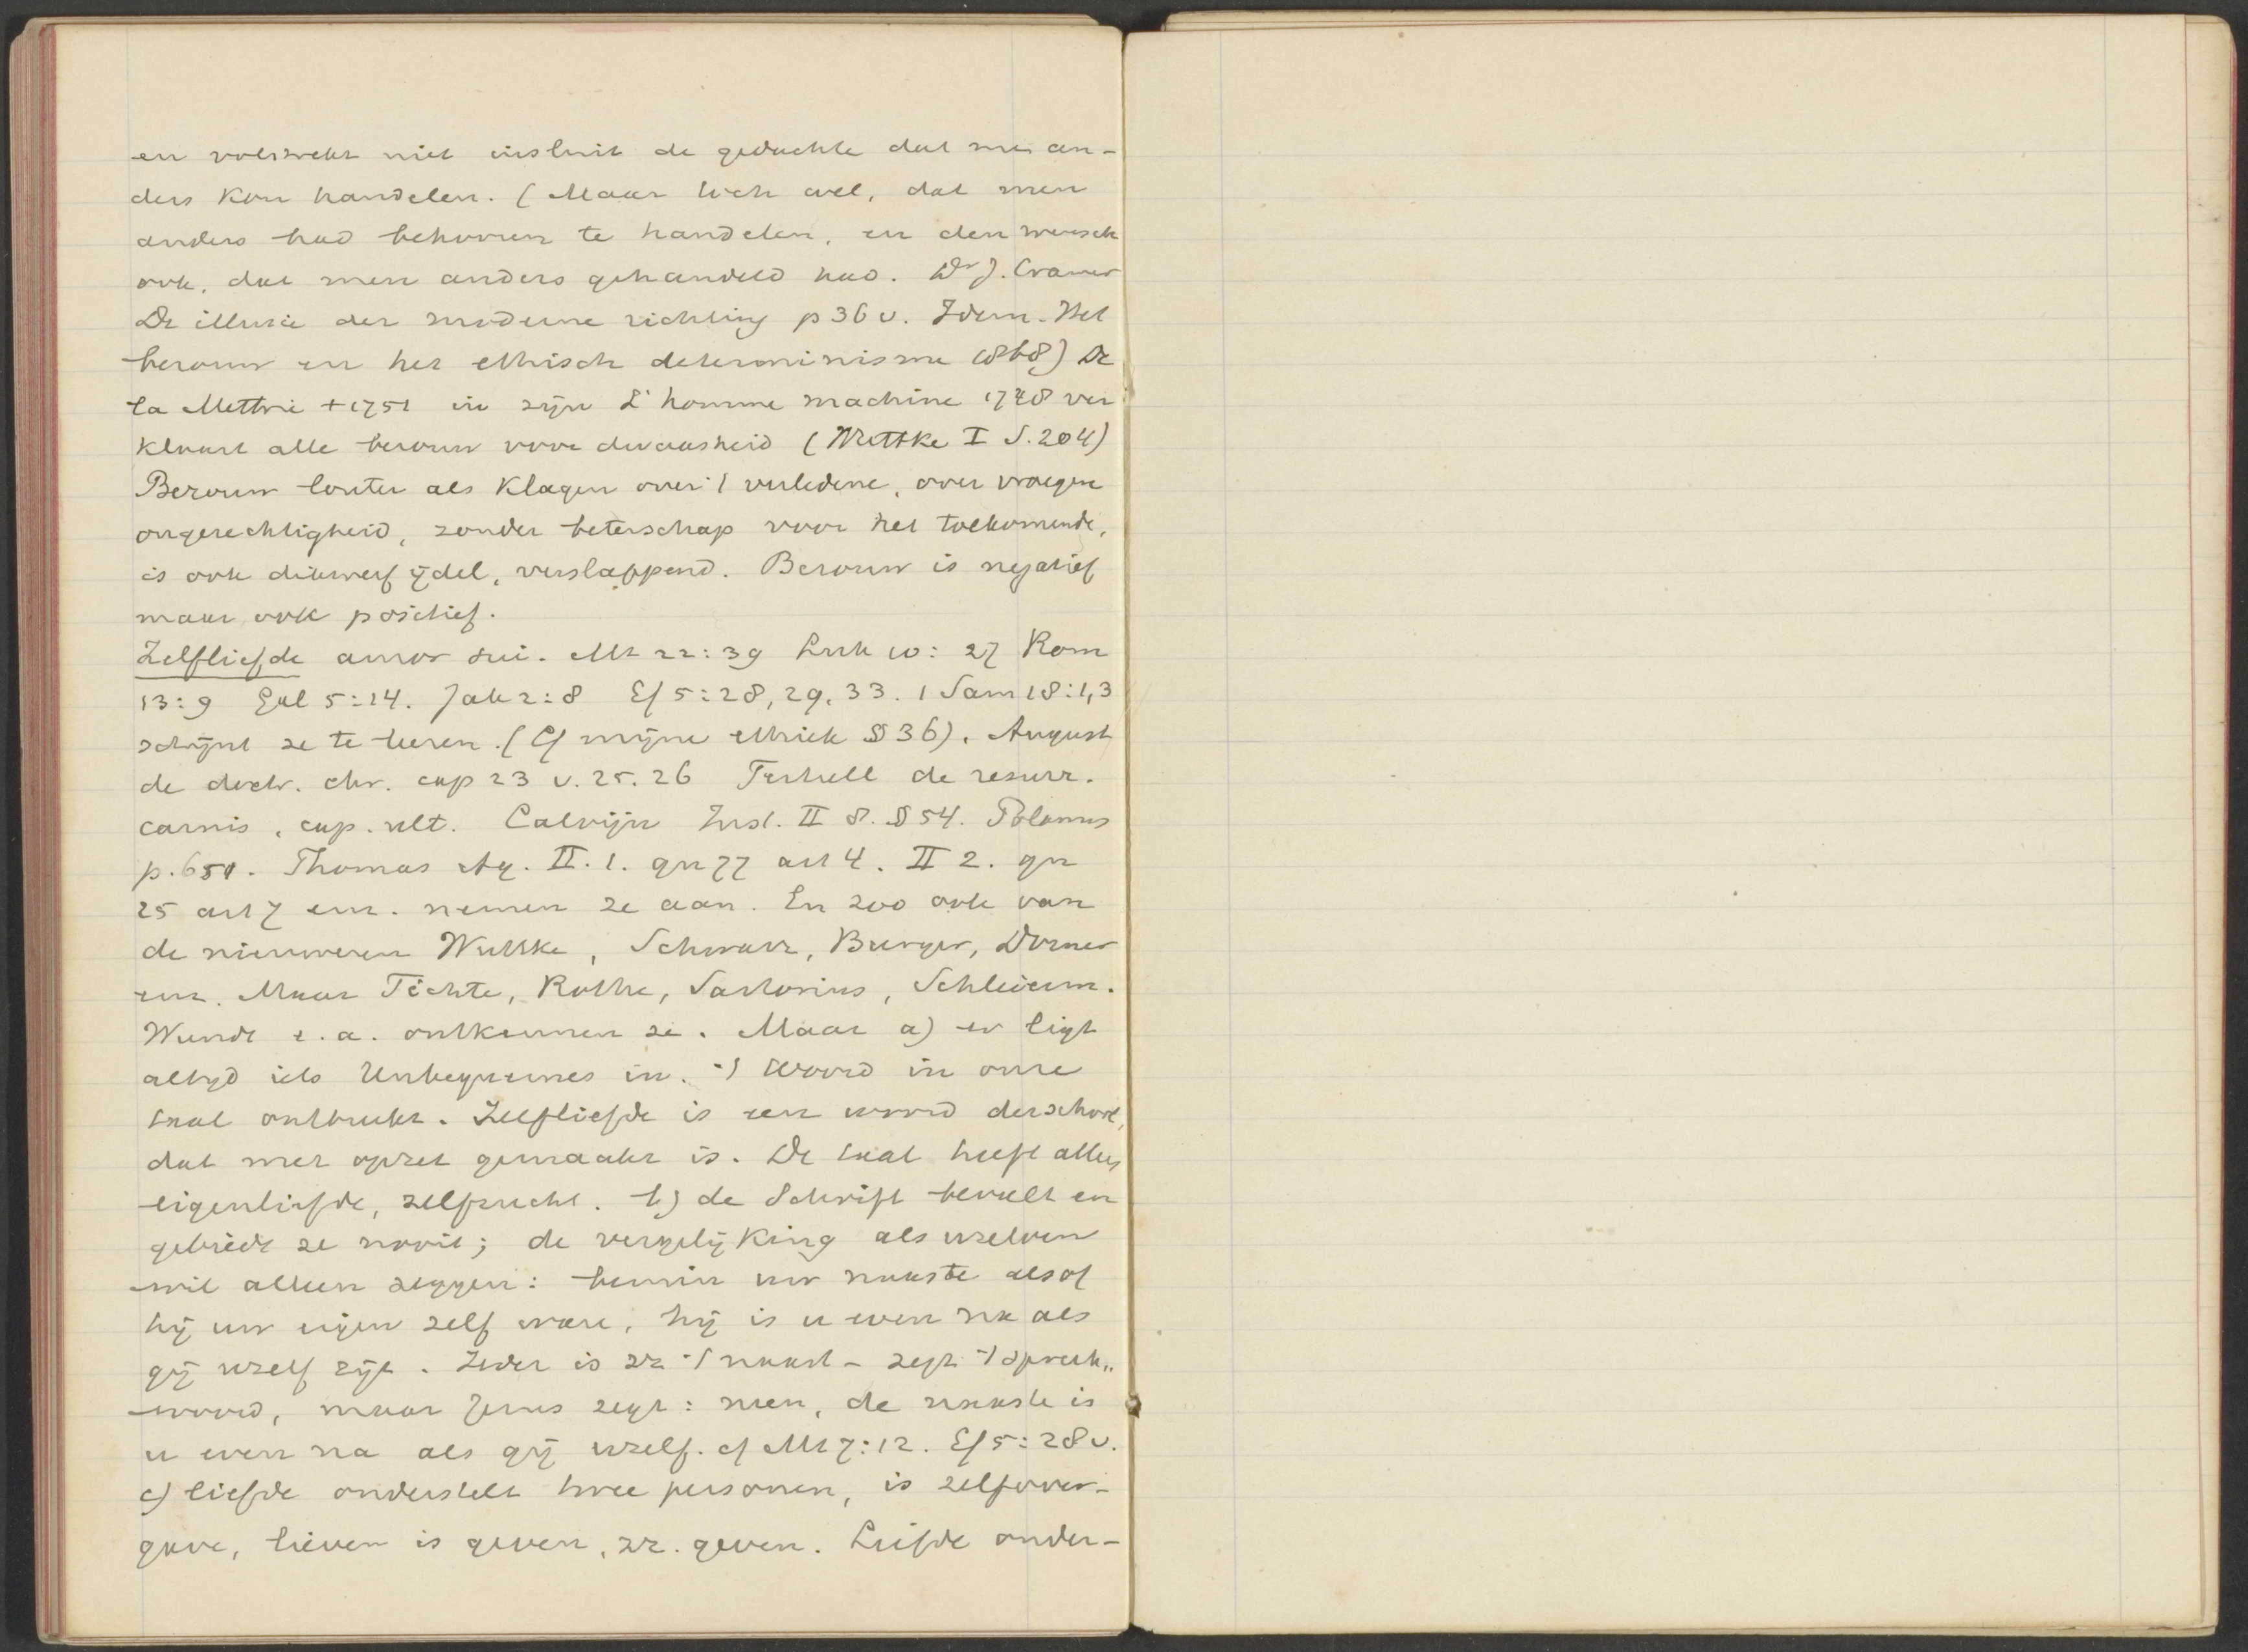 en volstrekt niet insluit de gedachte dat men an-
ders kon handelen. (Maar toch wel, dat men
anders had behooren te handelen, en den wensch
ook, dat men anders gehandeld had. Dr J. Cramer
De illusie der moderne richting p 36 v. Idem. Het
berouw en het ethisch determinisme 1868) De
la Mettrie +1751 in zijn L'homme machine 1748 ver
klaart alle berouw voor dwaasheid (Wuttke I S. 204)
Berouw louter als klagen over 't verledene, over vroegere
ongerechtigheid, zonder beterschap voor het toekomende,
is ook dikwerf ijdel, verslappend. Berouw is negatief
maar ook positief.
Zelfliefde amor sui. Mt 22:39 Luk 10:27 Rom
13:9 Gal 5:14. Jak 2:8 Ef 5:28,29,33. 1 Sam 18:1,3
schijnt ze te leeren. (Cf mijne ethiek § 36). August
de doctr. chr. cap 23 v. 25. 26 Tertull de resurr.
carnis, cap. ult. Calvijn Inst. II 8. § 54. Polanus
p. 651. Thomas Aq. II. 1. qu 77 art 4. II 2. qu
25 art 7 enz. nemen ze aan. En zoo ook van
de nieuweren Wuttke, Schwarz, Burger, Dorner
enz. Maar Fichte, Rothe, Sartorius, Schleierm.
Wundt e. a. ontkennen ze. Maar a) er ligt
altijd iets Unbequemes in. 't Woord in onze
taal ontbreekt. Zelfliefde is een woord der school,
dat met opzet gemaakt is. De taal heeft alleen
eigenliefde, zelfzucht. b) de Schrift beveelt en
gebiedt ze nooit; de vergelijking als uzelven
wil alleen zeggen: bemin uw naaste alsof
hij uw eigen zelf ware, hij is u even na als
gij uzelf zijt. Ieder is zz 't naast - zegt 't spreek„
woord, maar Jezus zegt: neen, de naaste is
u even na als gij uzelf. cf Mt 7:12. Ef 5:28 v.
c) liefde onderstelt twee personen, is zelfover-
gave, lieven is geven, zz. geven. Liefde onder-